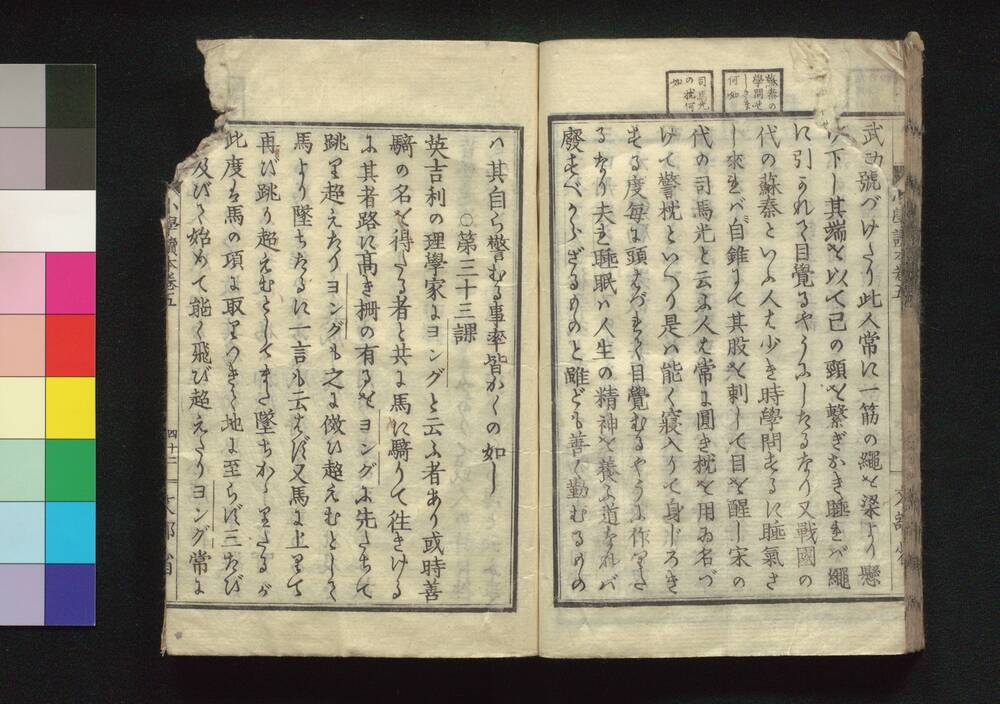 蘇秦の
學問せ
しさま
何如
司馬光
の枕何
如
武ゟ號づけたり此人常に一筋の繩を梁より懸
以下し其端を以て己の頸を繋ぎおき睡れバ繩
に引かれて目覺るやうにしたるなり又戰國の
代の蘇秦といふ人は少き時學問するに睡氣さ
し來れバ自錐にて其股を刺して目を醒し宋の
代の司馬光と云ふ人は常に圓き枕を用ゐ名づ
けて警枕といへり是ハ能く寢入りて身じろき
する度毎に頭はづれて目覺むるやうに作りた
るなり夫れ睡眠ハ人生の精神を養ふ道なれバ
廢すべからざるものと雖ども善く勤むるもの
ハ其自ら警むる事率皆かくの如し
○第三十三課
英吉利の理學家にヨングと云ふ者あり或時善
騎の名を得たる者と共に馬に騎りて徃きける
に其者路に高き柵の有るをヨングに先だちて
跳り超えたりヨングも之に傚ひ超えむとして
馬より墜ちたるに一言も云はず又馬に上りて
再び跳り超えむとしてまた墜ちかゝりたるが
此度は馬の項に取りつきて地に至らず三たび
及びて始めて能く飛び超えたりヨング常に
小學讀本卷五
四十二
文部省